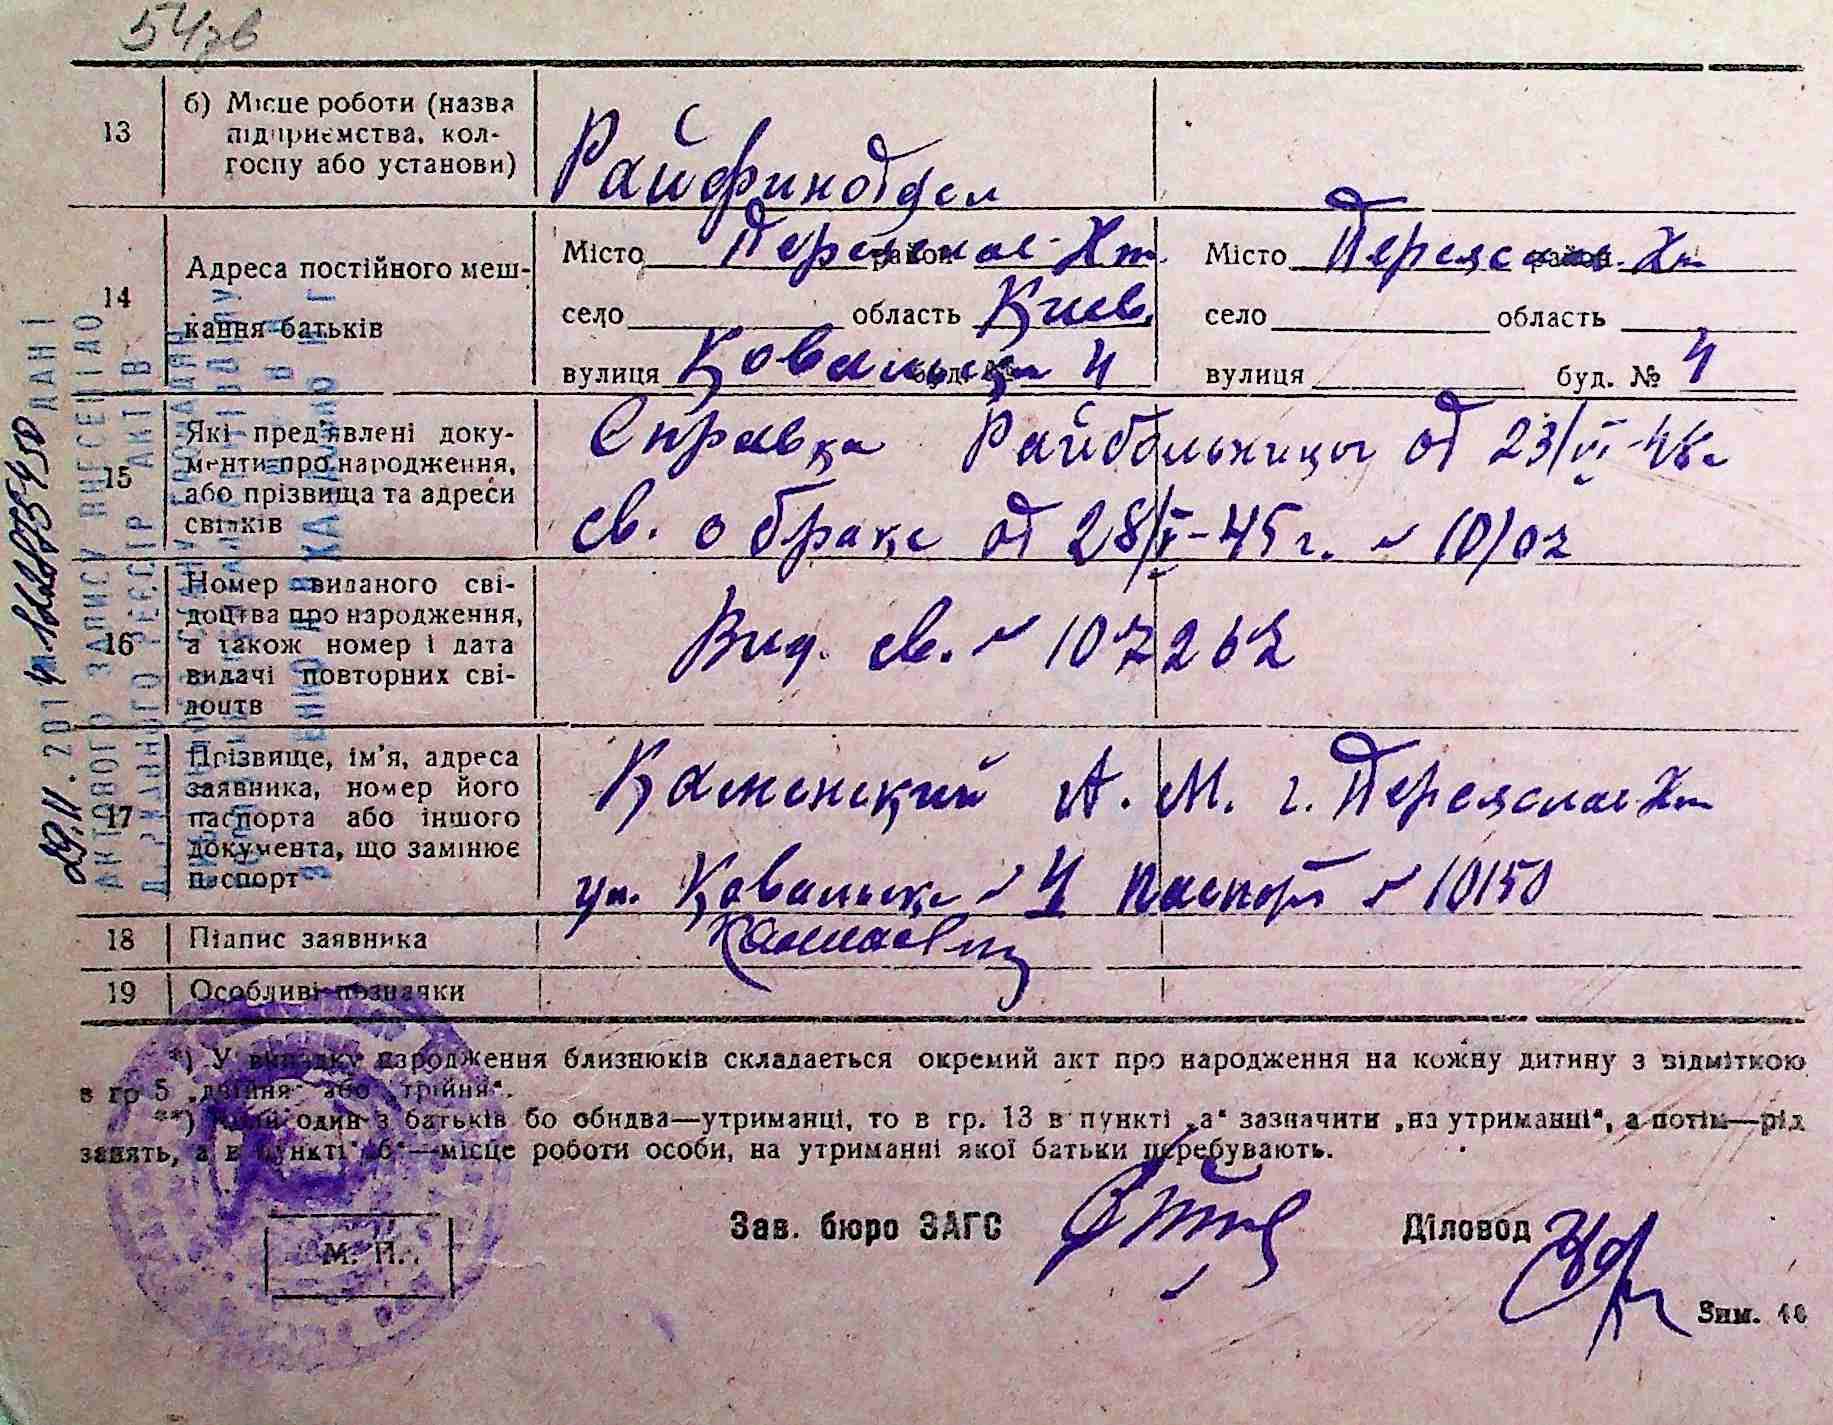 54зв
13
б) Місце роботи (назва
підприємства, кол-
госпу або установи)
Райфинотдел
14
Адреса постійного меш-
кання батьків
Місто Переяслав-Хм. район
село область Киев.
вулиця Ковальска буд. № 4
Місто Переяслав-Хм район
село область
вулиця буд. № 4
15
Які пред'явлені доку-
менти про народження,
або прізвища та адреси
свідків
Справка Райбольницы от 23/VI-46г
св. о браке от 28/V-45г. № 10/02
16
Номер виданого сві-
доцтва про народження,
а також номер і дата
видачі повторних сві-
доцтв
Вид. св. № 107262
17
Прізвище, ім'я, адреса
заявника, номер його
паспорта або іншого
документа, що замінює
паспорт
Каменский А. М. г. Переяслав-Хм
ул. Ковальска № 4 паспорт № 10150
18
Підпис заявника
19
Особливі позначки
*) У випадку народження близнюків складається окремий акт про народження на кожну дитину з відміткою
в гр 5 „двійня“ або „трійня“.
**) Коли один з батьків бо обидва—утриманці, то в гр. 13 в пункті „а“ зазначити „на утриманні“, а потім—рід
занять, а в пункті „б“—місце роботи особи, на утриманні якої батьки перебувають.
Зав. бюро ЗАГС
Діловод
М. П.
Зим.